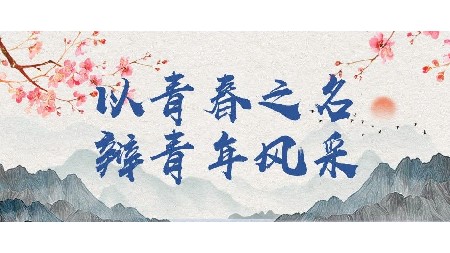 以青春之名
辩青年风采